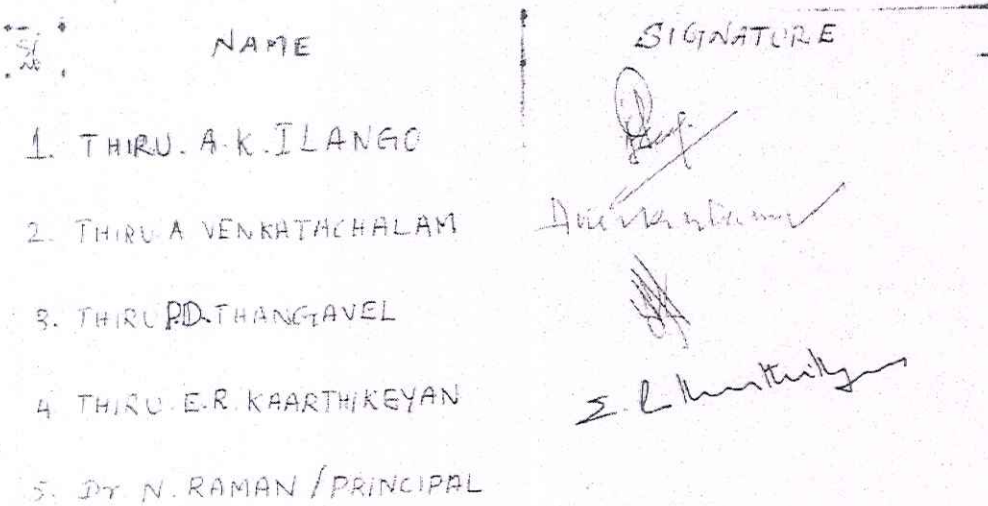 Sl. No. NAME SIGNATURE
1. THIRU. A.K. ILANGO
2. THIRU A VENKATACHALAM
3. THIRU P.D. THANGAVEL
4 THIRU E.R. KAARTHIKEYAN E.R. Kaarthikeyan
5. Dr N. RAMAN / PRINCIPAL